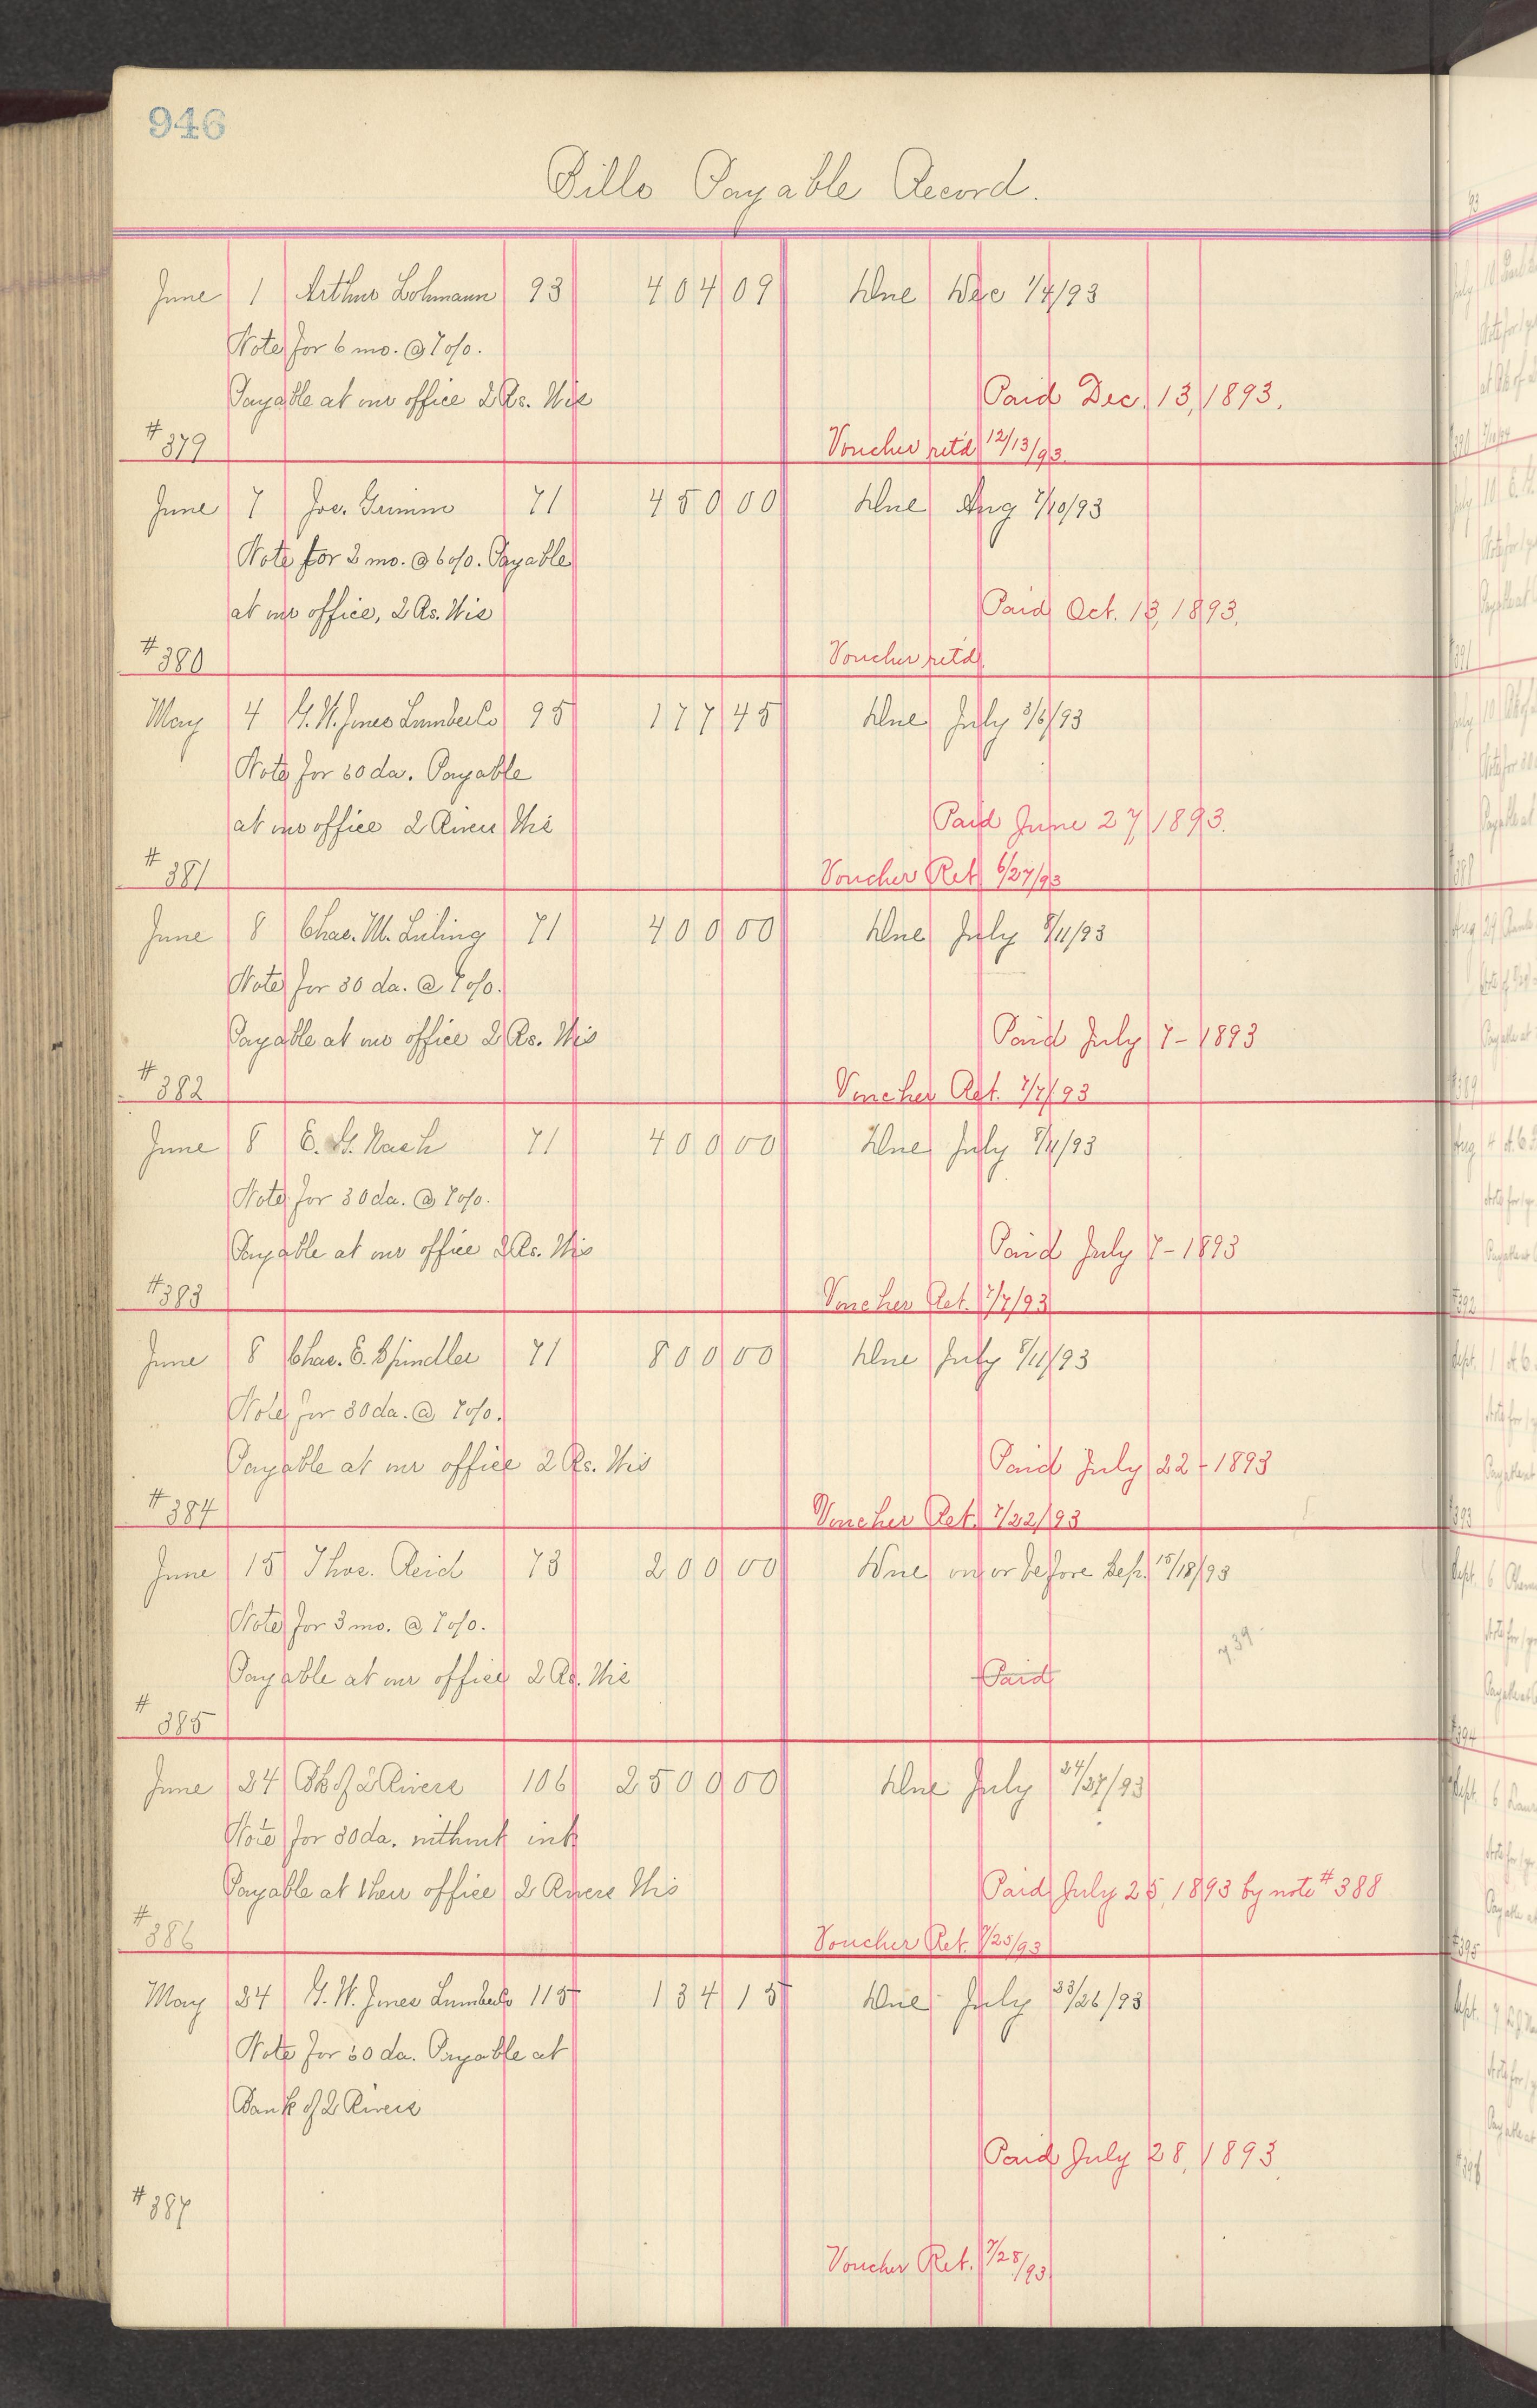 946
Bills Payable Record.
June 1 Arthur Lohmann 93 404 09 Due Dec 1/4/93
Note for 6 mo. @ 7 o/o.
Payable at our office 2 Rs. Wis Paid Dec. 13, 1893.
# 379 Voucher ret'd 12/13/93
June 7 Jos. Grimm 71 450 00 Due Aug 7/10/93
Note for 2 mo. @ 6 o/o. Payable
at our office, 2 Rs. Wis Paid Oct. 13, 1893.
# 380 Voucher ret'd
May 4 G. W. Jones Lumber Co 95 177 45 Due July 3/6/93
Note for 60 da. Payable
at our office 2 Rivers Wis Paid June 27, 1893.
# 381 Voucher Ret 6/27/93
June 8 Chas. W. Luling 71 400 00 Due July 8/11/93
Note for 30 da. @ 7 o/o.
Payable at our office 2 Rs. Wis Paid July 7 - 1893
# 382 Voucher Ret. 7/7/93
June 8 E. G. Nash 71 400 00 Due July 8/11/93
Note for 30 da. @ 7 o/o.
Payable at our office 2 Rs. Wis Paid July 7 - 1893
# 383 Voucher Ret. 7/7/93
June 8 Chas. E. Spindler 71 800 00 Due July 8/11/93
Note for 30 da. @ 7 o/o.
Payable at our office 2 Rs. Wis Paid July 22 - 1893
# 384 Voucher Ret. 7/22/93
June 15 Thos. Reid 73 200 00 Due on or before Sep. 15/18/93
Note for 3 mo. @ 7 o/o.
Payable at our office 2 Rs. Wis Paid
# 385
June 24 Bk of 2 Rivers 106 2500 00 Due July 24/27/93
Note for 30 da. without int
Payable at their office 2 Rivers Wis Paid July 25, 1893 by note # 388
# 386 Voucher Ret. 7/25/93
May 24 G. W. Jones Lumber Co 115 134 15 Due July 23/26/93
Note for 60 da. Payable at
Bank of 2 Rivers
Paid July 28, 1893
# 387
Voucher Ret. 7/28/93